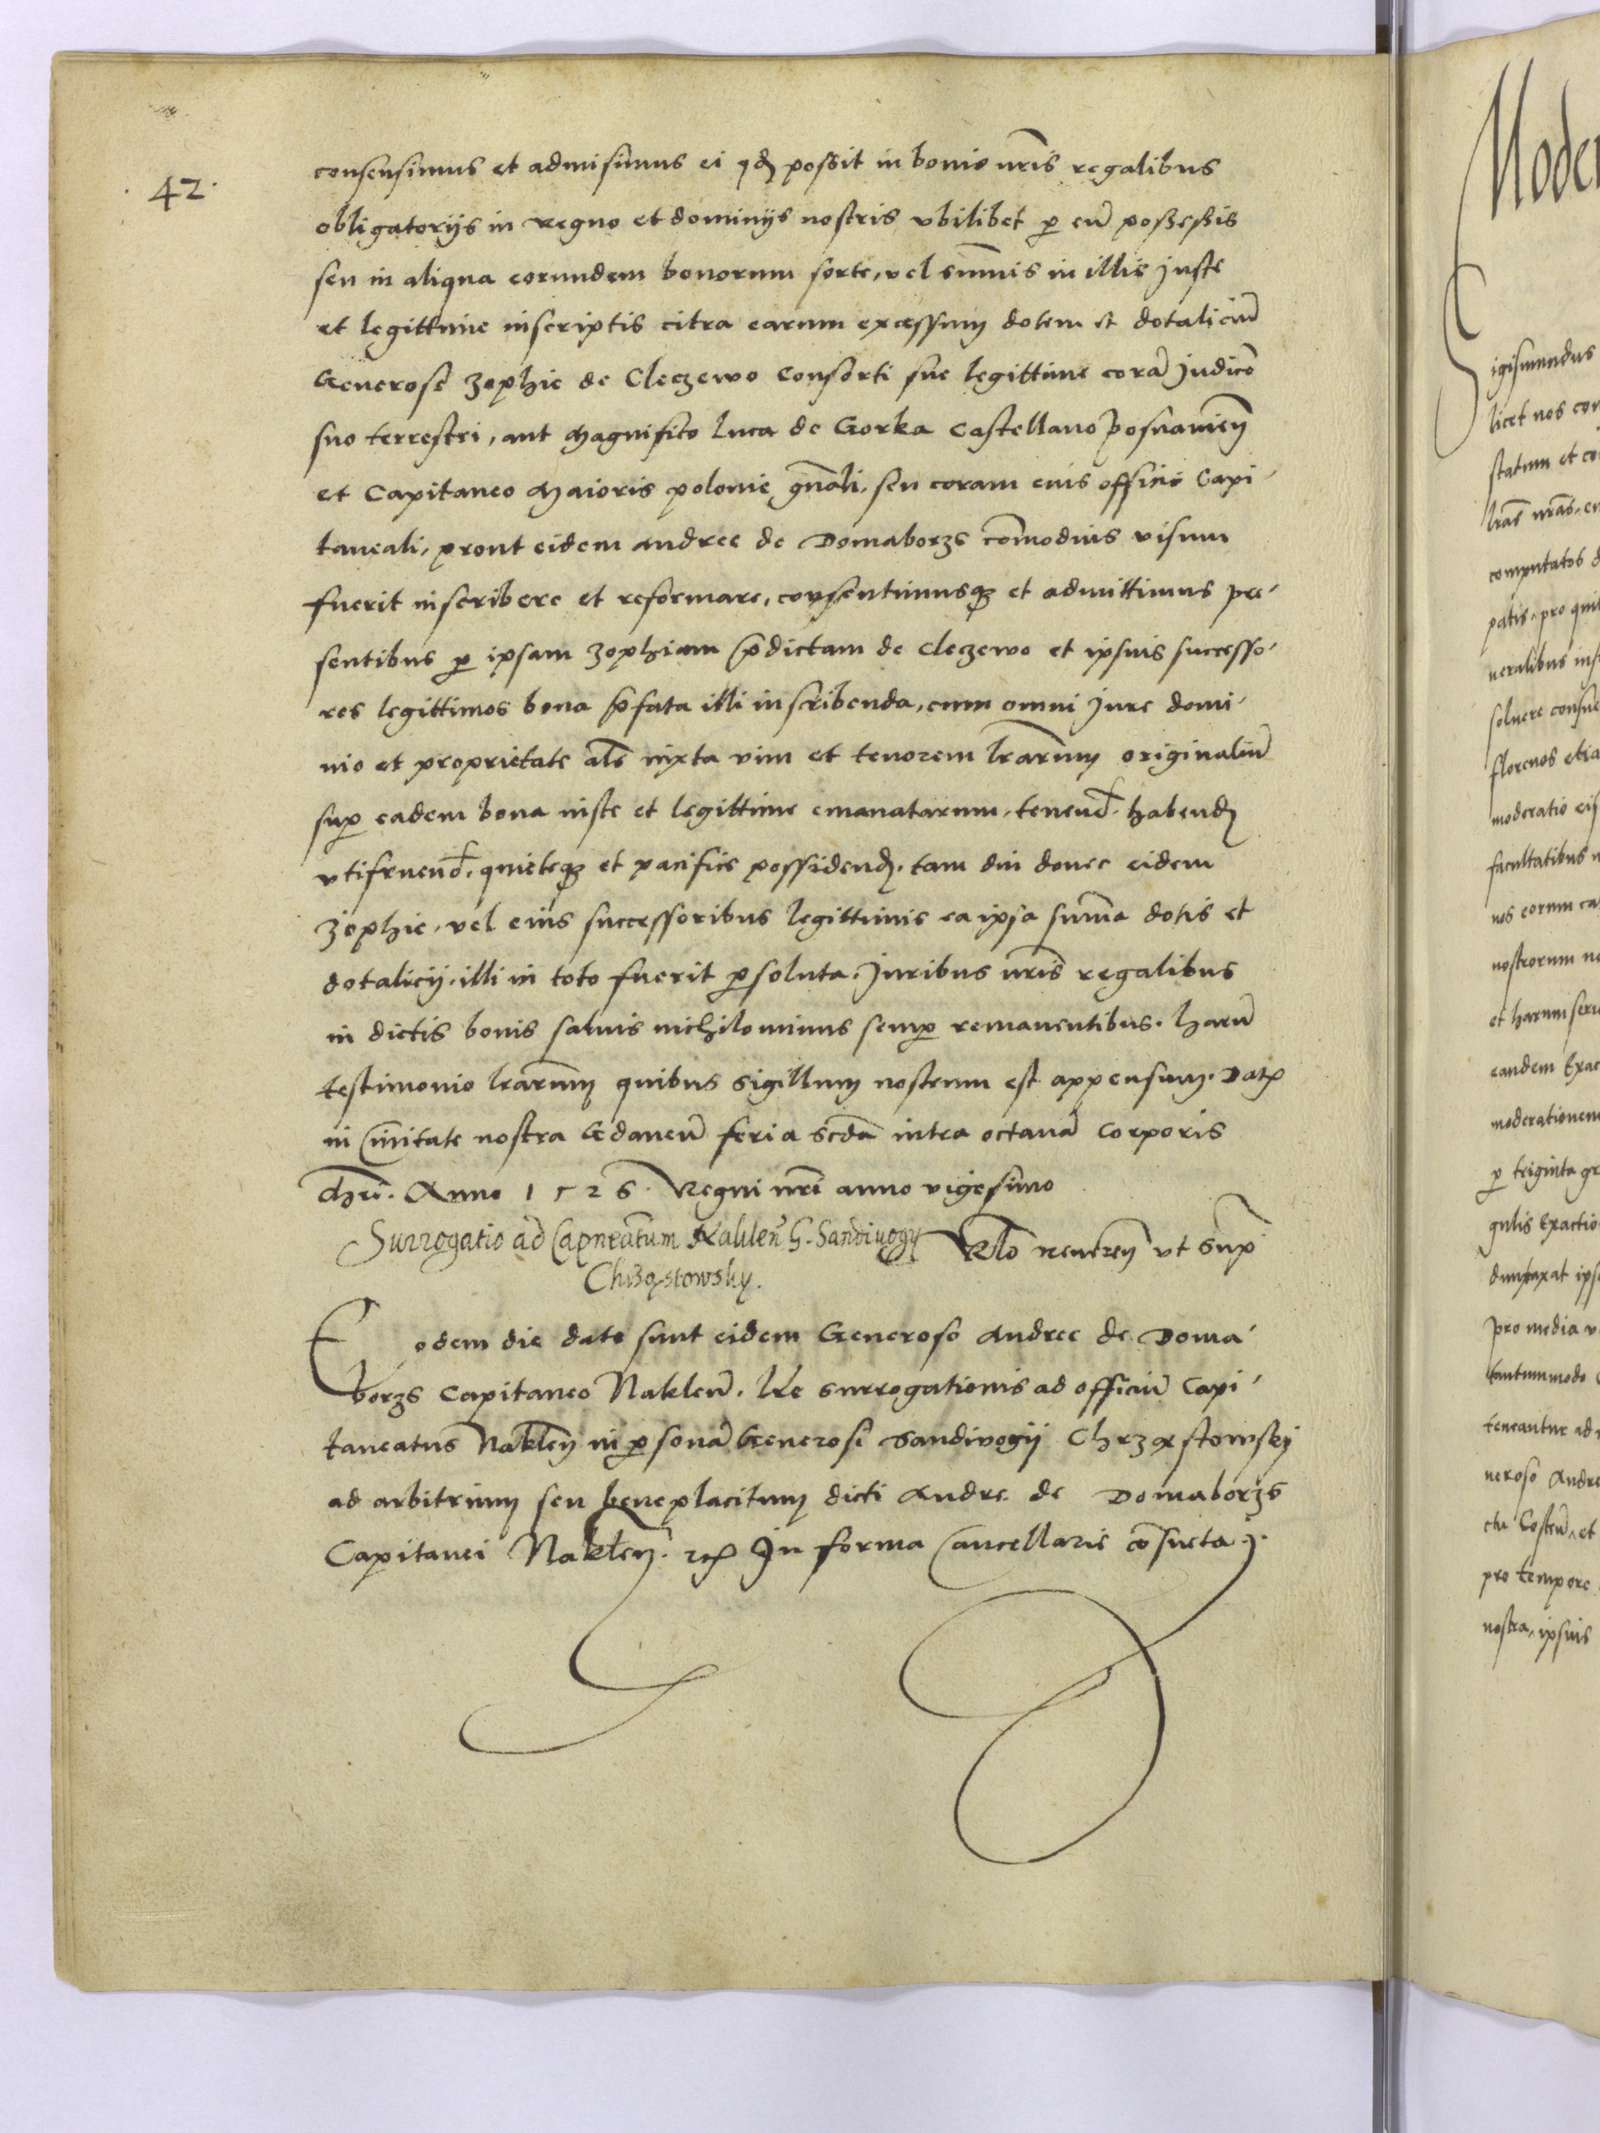 .42.
consensimus et admisimus ei qd possit in bonis nris regalibus
obligatoriis in regno et dominiis nostris ubilibet p eu possessis
seu in aliqua eorundem bonorum sorte, vel summis in illis juste
et legittime inscriptis citra earum excessum dotem et dotaliciu
Generose Zophie de Cleczewo Consorti sue legittime cora judicio
suo terrestri, aut Magnifico Luca de Gorka Castellano Posnanien
et Capitaneo Maioris polonie gnali, seu coram eius officio Capi-
taneali, prout eidem Andree de Domaborzs comodius visum
fuerit inscribere et reformare, consentimusq et admittimus pre-
sentibus p ipsam Zophiam pdictam de Cleczewo et ipsius successo-
res legittimos bona pfata illi inscribenda, cum omni jure domi-
nio et proprietate als iuxta vim et tenorem lrarum originaliu
sup eadem bona iuste et legittime emanatarum. tenend. habend
utifruend. quieteq et pacifice possidend. tam diu donec eidem
Zophie, vel eius successoribus legittimis ea ipsa suma dotis et
dotalicii. illi in toto fuerit psoluta. Juribus nris regalibus
in dictis bonis salvis nichilominus semp remanentibus. Haru
testimonio lrarum quibus sigillum nostrum est appensum. Dat
in Civitate nostra Gdaneñ feria scda intra octava Corporis
Chri. Anno 1526. Regni nri anno vigesimo
Surrogatio ad Capneatum Naklen G. Sandivogy Rlo ut sup
Chrząstowsky.
Eodem die date sunt eidem Generoso Andree de Doma-
borzs Capitaneo Naklen. lre surrogationis ad officiu Capi-
taneatus Naklen in psona Generosi Sandivogii Chrząstowskij
ad arbitrium seu beneplacitum dicti Andre. de Domaborzs
Capitanei Naklen. In forma Cancellarie cosueta.
Moder
Sigismundus
licet nos con
statum et co
lras nras, 
computatos d
patis, pro qui
neralibus ins
solvere consue
florenos etia
moderatio eis
facultatibus n
nos eorum ca
nostrorum no
et harum seri
eandem Exac
moderationem
p triginta gr
gulis Exactio
duntaxat ips
pro media 
tantummodo
teneantur ad
neroso Andre
Costen, et
pro tempore
nostra, ipsius